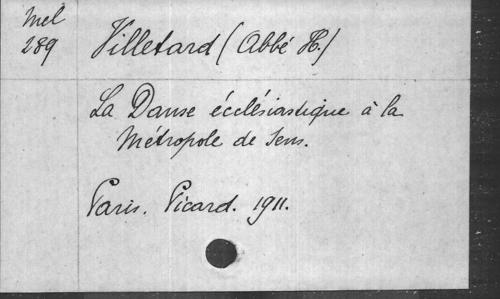 Mel
289
Villetard (Abbé H.)
La Danse écclésiastique à la
Métropole de Sens.
Paris. Picard. 1911.